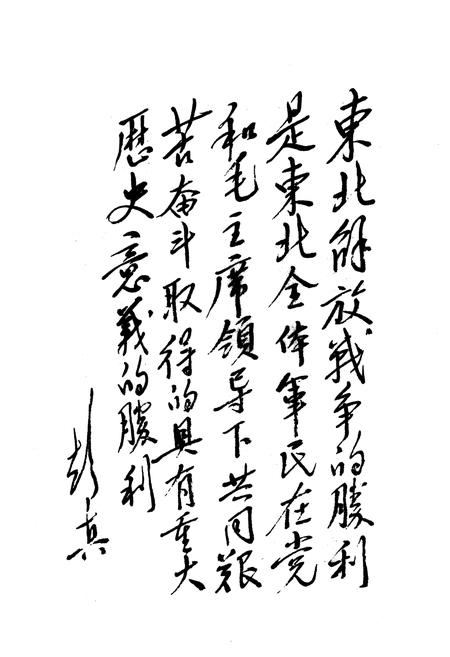 東北解放战争的勝利
是東北全体軍民在党
和毛主席領导下共同艰
苦奋斗取得的具有重大
歷史意義的勝利
彭真